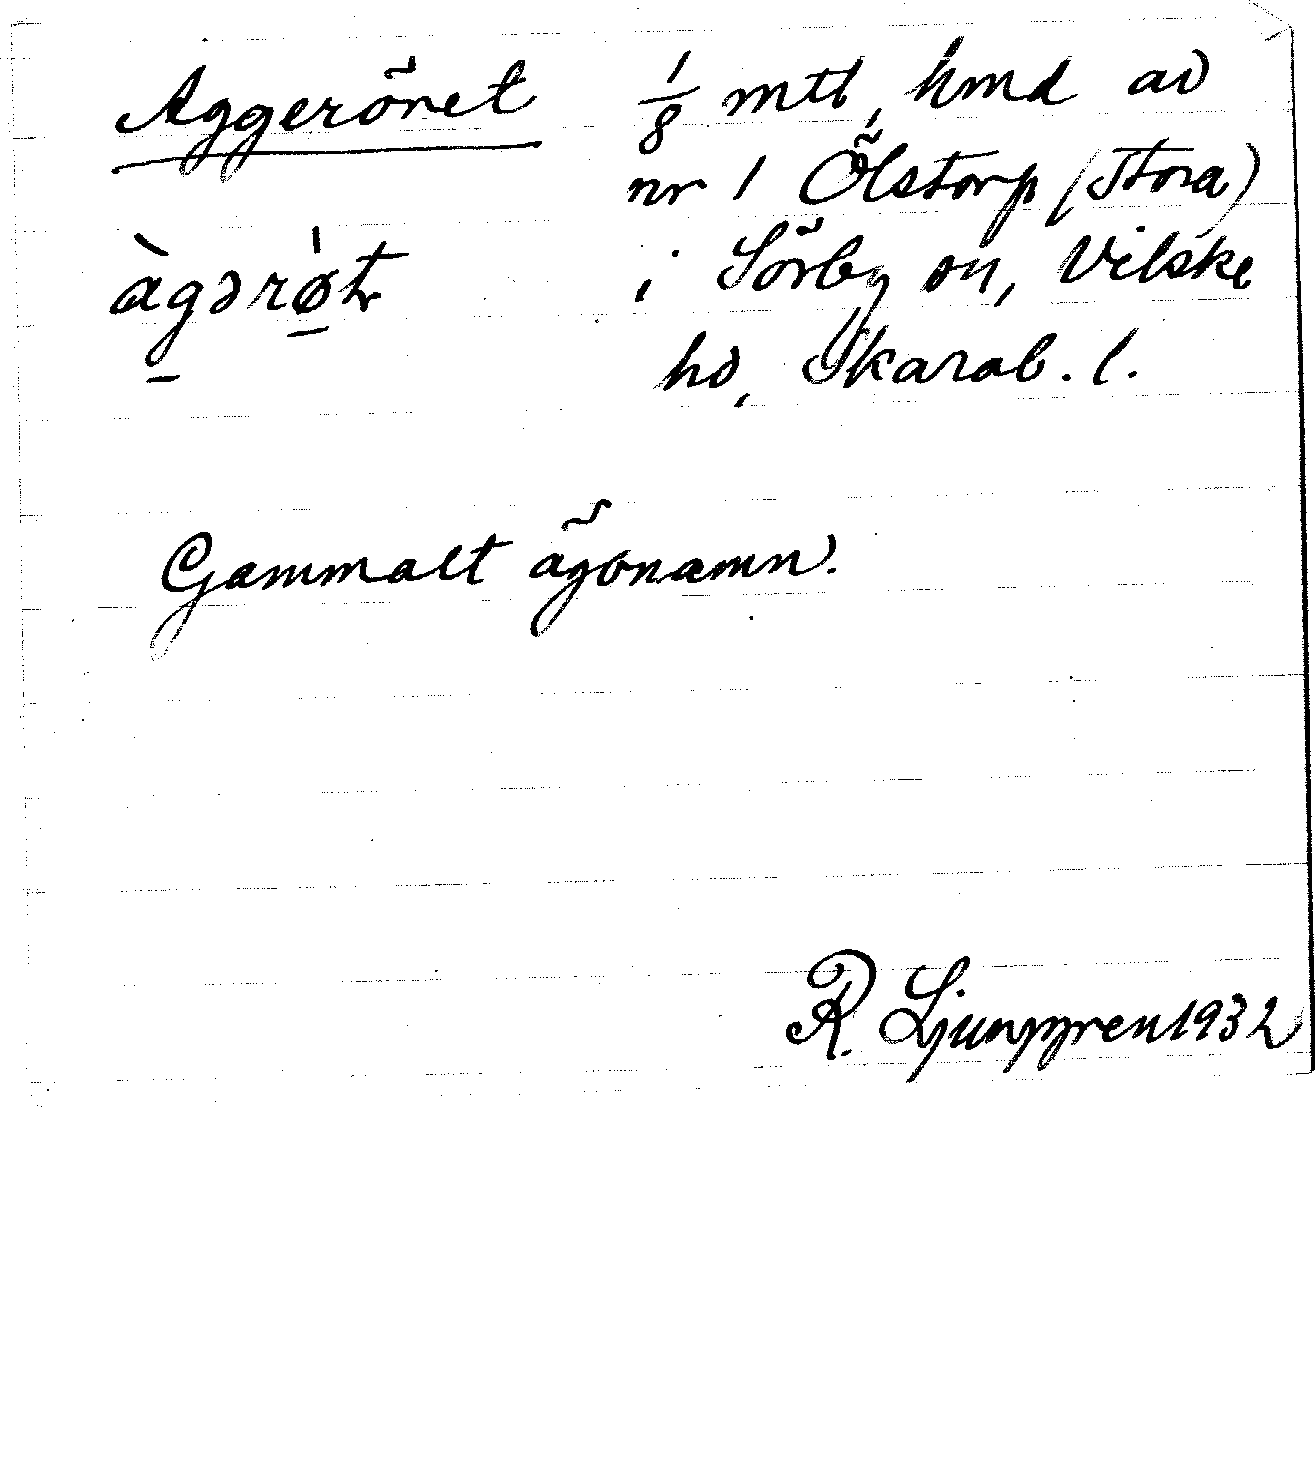 Aggeröret 1/8 mtl, hmd av
nr 1 Ölstorp (Stora)
àgərø̍t i Sörby sn, Vilske
hd, Skarab. l.
Gammalt ägonamn.
R. Ljunggren 1932